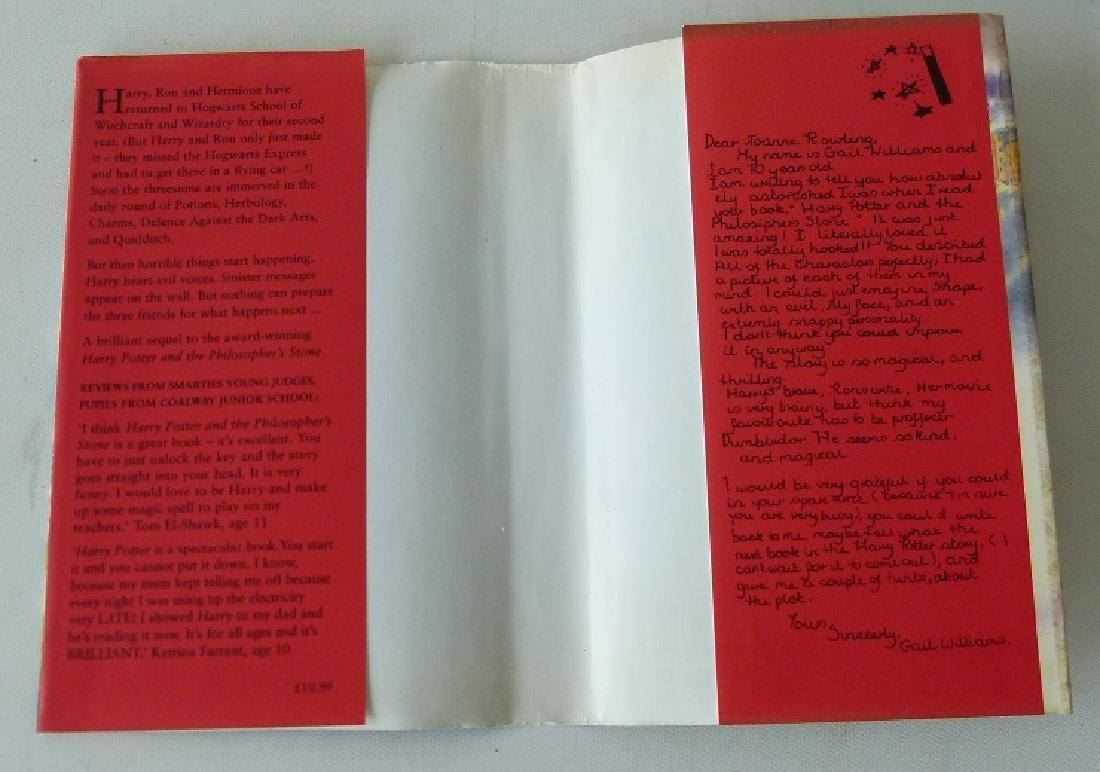 Harry, Ron and Hermione have
returned to Hogwarts School of
Witchcraft and Wizardry for their second
year. (But Harry and Ron only just made
it – they missed the Hogwarts Express
and had to get there in a flying car ...!)
Soon the threesome are immersed in the
daily round of Potions, Herbology,
Charms, Defence Against the Dark Arts,
and Quidditch.
But then horrible things start happening.
Harry hears evil voices. Sinister messages
appear on the wall. But nothing can prepare
the three friends for what happens next ...
A brilliant sequel to the award-winning
Harry Potter and the Philosopher's Stone.
REVIEWS FROM SMARTIES YOUNG JUDGES,
PUPILS FROM COALWAY JUNIOR SCHOOL:
'I think Harry Potter and the Philosopher's
Stone is a great book – it's excellent. You
have to just unlock the key and the story
goes straight into your head. It is very
funny. I would love to be Harry and make
up some magic spell to play on my
teachers.' Tom El-Shawk, age 11
'Harry Potter is a spectacular book. You start
it and you cannot put it down. I know,
because my mum kept telling me off because
every night I was using up the electricity
very LATE! I showed Harry to my dad and
he's reading it now. It's for all ages and it's
BRILLIANT.' Katrina Farrant, age 10
£10.99
Dear Joanne Rowling,
My name is Gail Williams and
I am 10 years old
I am writing to tell you how absolut
ely astonished I was when I read
your book, "Harry Potter and the
Philosiphers Stone" It was just
amazing! I literally loved it
I was totally hooked!! You described
all of the charactors perfectly, I had
a picture of each of them in my
mind. I could just emagine Snape,
with an evil, sly face, and an
extremly snappy personality
I don't think you could inpove
it in anyway
The story is so magical, and
thrilling.
Harry's brave, Rons wise, Hermoine
is very brainy, but think my
favouroute has to be proffecer
Dumbledor. He seems so kind,
and magical
I would be very grateful if you could
in your spare time (because I'm sure
you are very busy), you could write
back to me, maybe tell what the
next book in the Harry Potter story, (I
cant wait for it to come out), and
give me a couple of hints, about
the plot.
Yours
Sincerely,
Gail Williams.